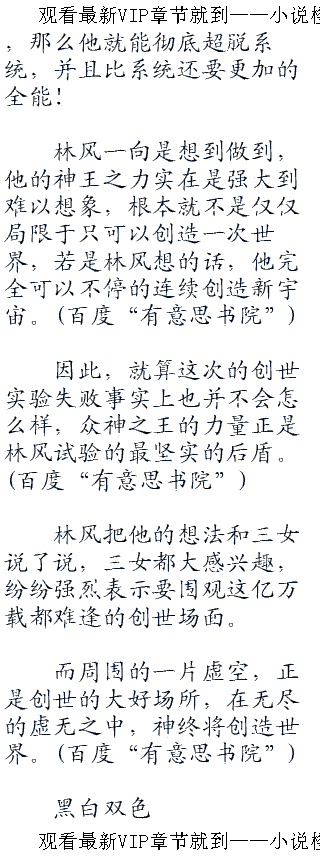 观看最新VIP章节就到——小说
，那么他就能彻底超脱系
统，并且比系统还要更加的
全能！
林风一向是想到做到，
他的神王之力实在是强大到
难以想象，根本就不是仅仅
局限于只可以创造一次世
界，若是林风想的话，他完
全可以不停的连续创造新宇
宙。(百度“有意思书院”)
因此，就算这次的创世
实验失败事实上也并不会怎
么样，众神之王的力量正是
林风试验的最坚实的后盾。
(百度“有意思书院”)
林风把他的想法和三女
说了说，三女都大感兴趣，
纷纷强烈表示要围观这亿万
载都难逢的创世场面。
而周围的一片虚空，正
是创世的大好场所，在无尽
的虚无之中，神终将创造世
界。(百度“有意思书院”)
黑白双色
观看最新VIP章节就到——小说